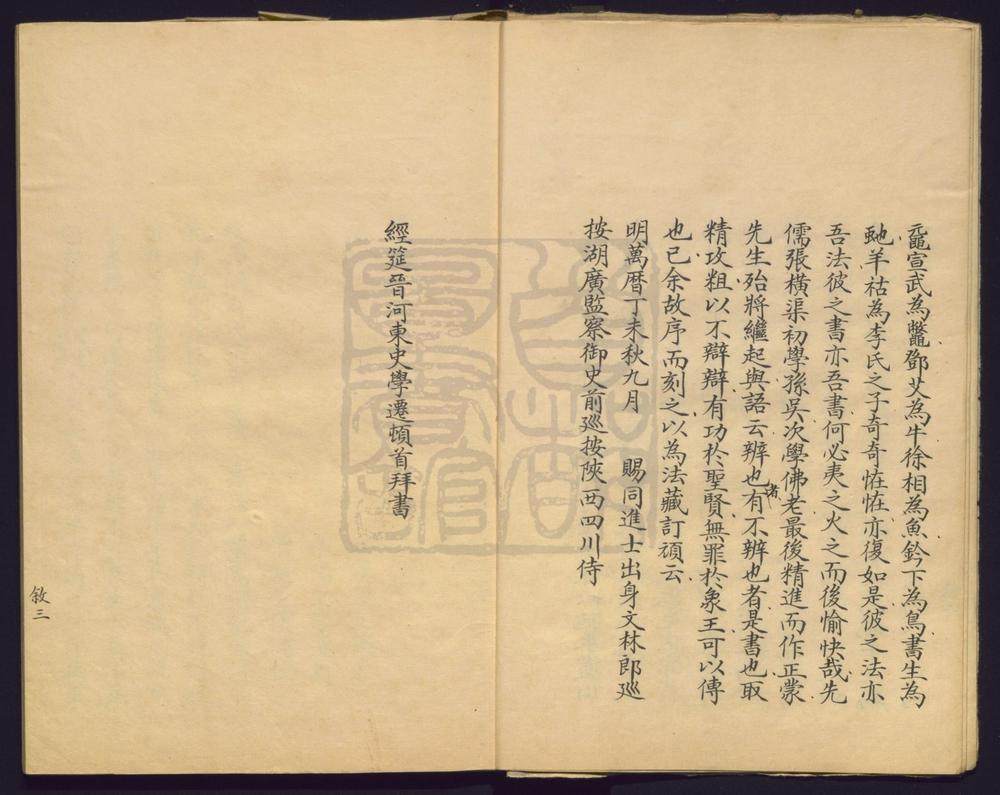 黿宣武為鼈鄧艾為牛徐相為魚鈐下為鳥書生為
虵羊祜為李氏之子奇奇恠恠亦復如是彼之法亦
吾法彼之書亦吾書何必夷之火之而後愉快哉先
儒張橫渠初學孫吳次學佛老最後精進而作正蒙
先生殆將繼起與語云辨也者有不辨也者是書也取
精攻粗以不辯辯有功於聖賢無罪於象王可以傳
也已余故序而刻之以為法藏訂頑云
明萬曆丁未秋九月　賜同進士出身文林郎廵
按湖廣監察御史前廵按陝西四川侍
經筵晉河東史學遷頓首拜書
敘三